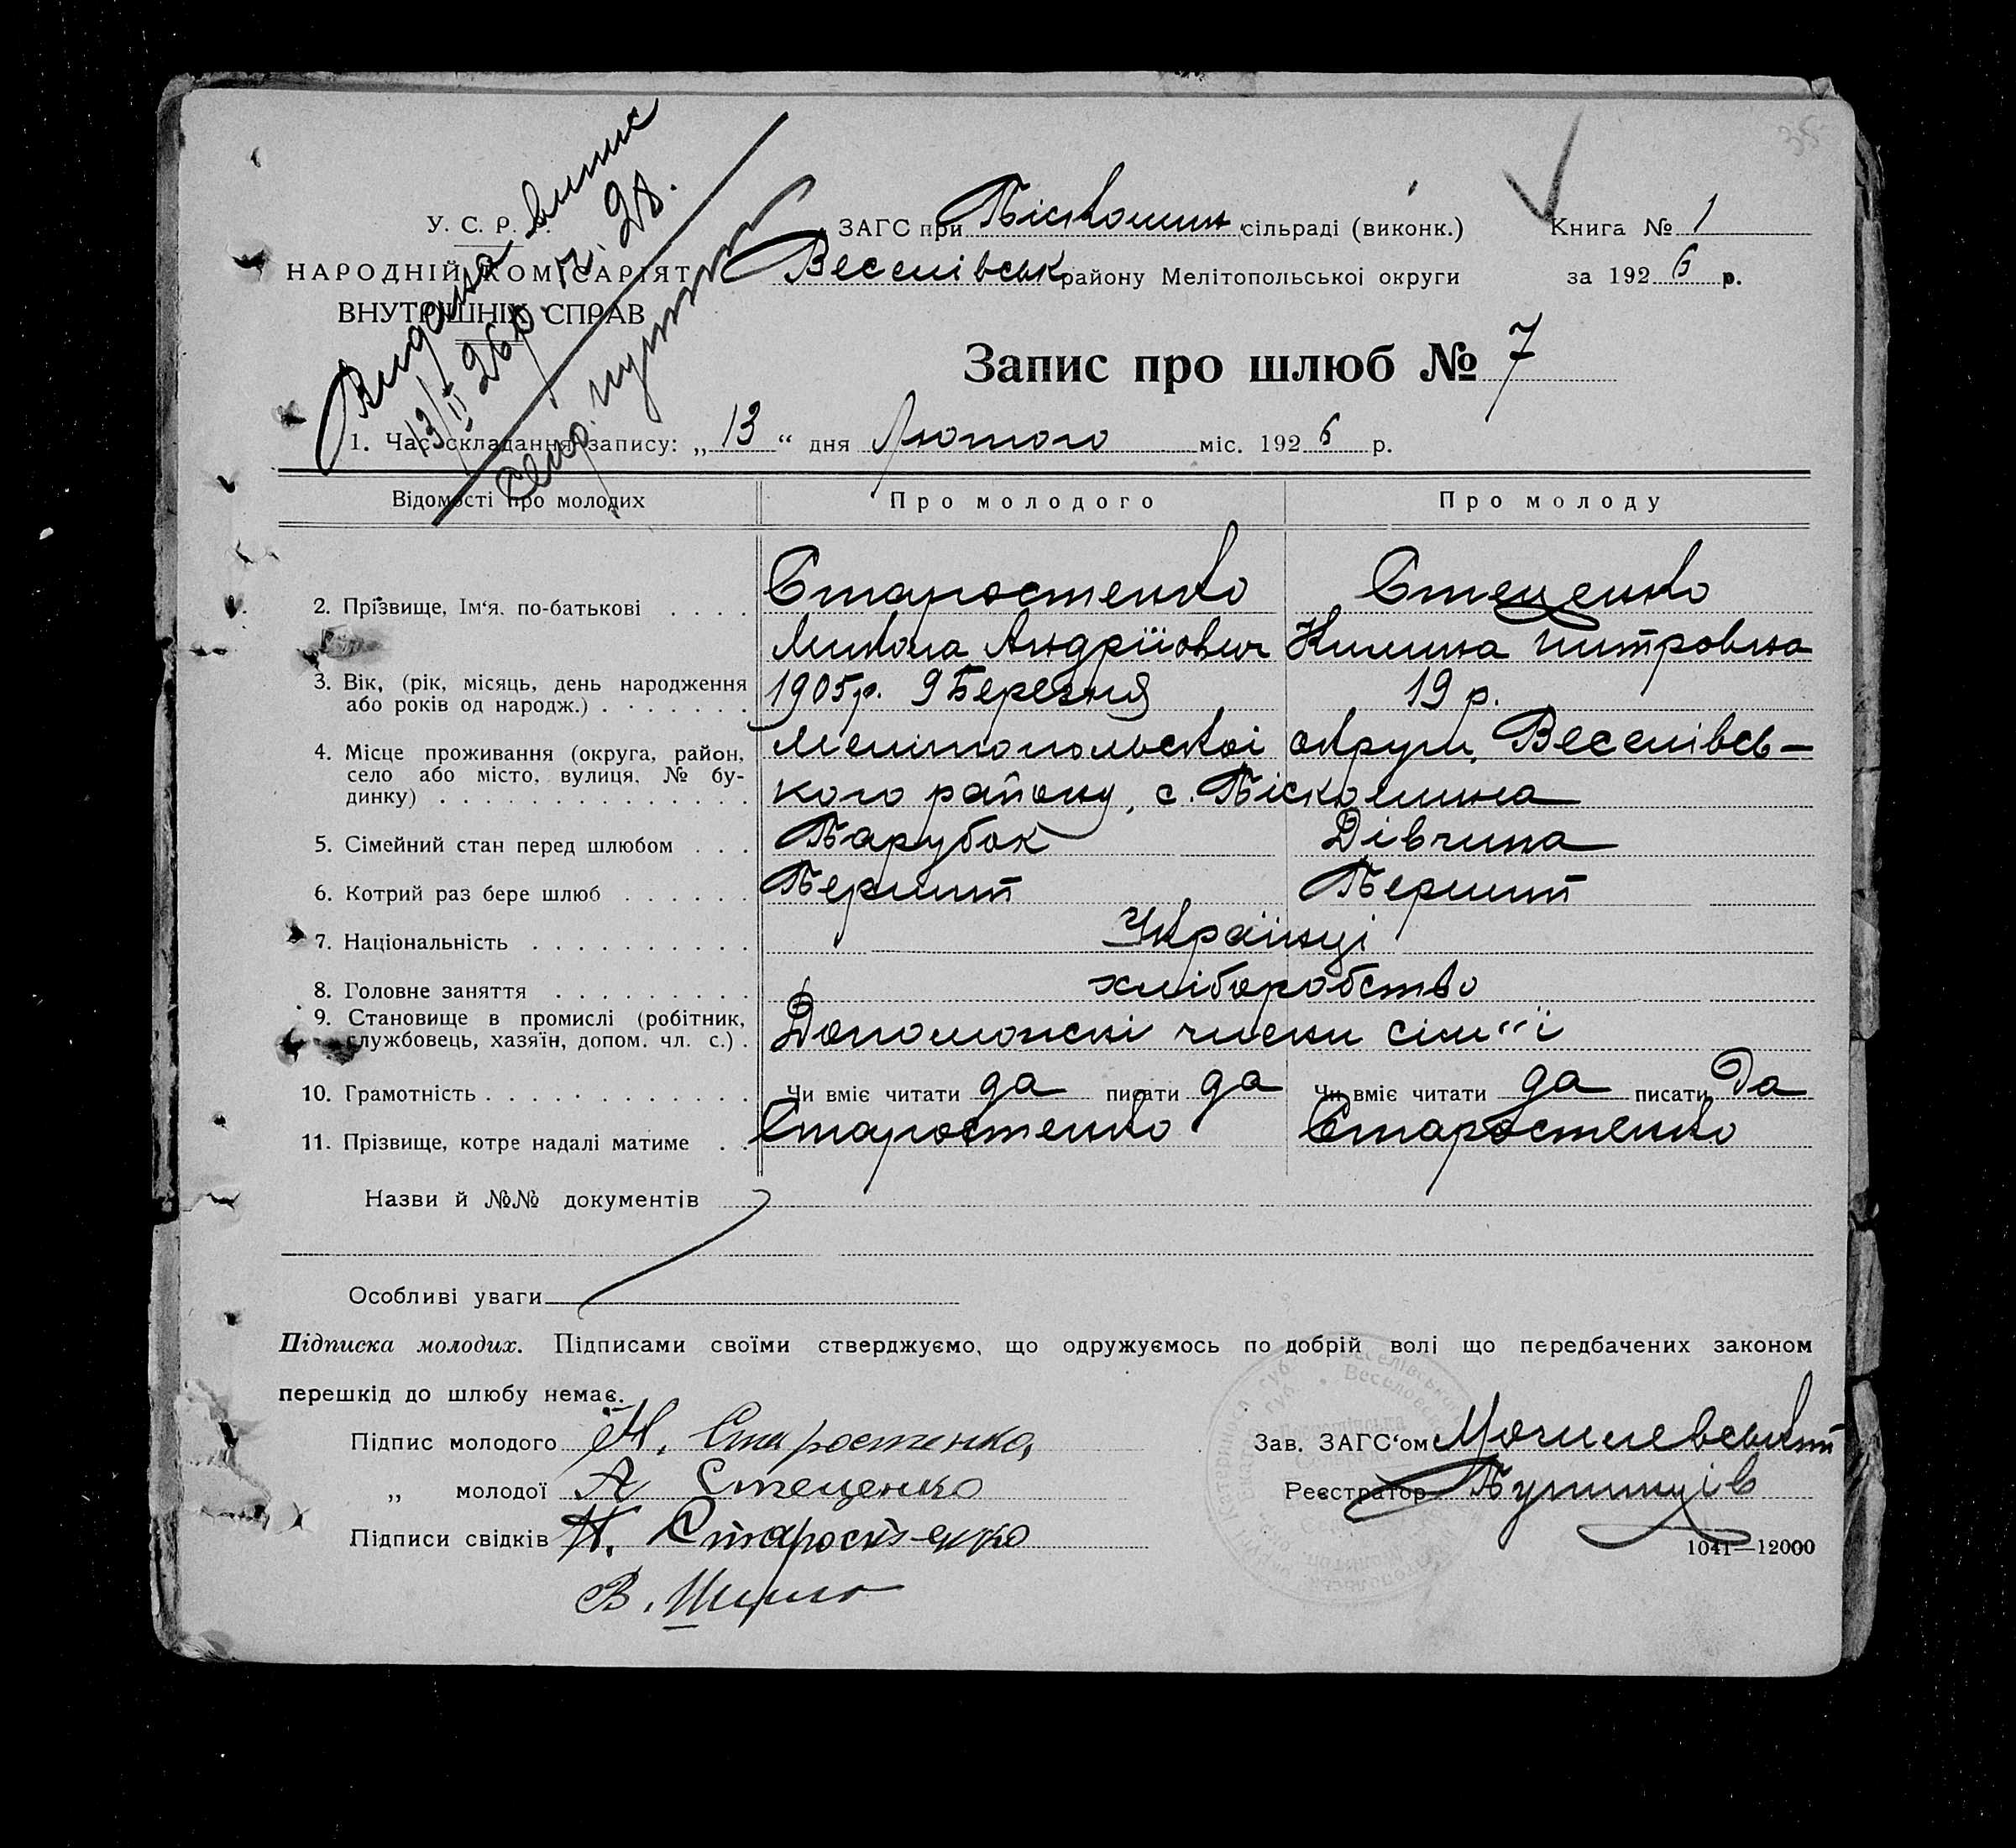 35
Видана випис
13/II 26 р. № 28.
У. С. Р. Р.
НАРОДНІЙ КОМІСАРІЯТ
ВНУТРІШНІХ СПРАВ
ЗАГС при Піскошин. сільраді (виконк.)
Веселівськ району Мелітопольської округи
Книга № 1
за 1926 р.
Запис про шлюб № 7
1. Час складання запису: „13“ дня Лютого міс. 1926 р.
Відомості про молодих Про молодого Про молоду
2. Прізвище, Ім‘я. по-батькові Старостенко Стеценко
Микола Андрійович Килина
3. Вік, (рік, місяць, день народження
або років од народж.) 1905 р. 9 Березня 19 р.
4. Місце проживання (округа, район,
село або місто, вулиця, № бу-
динку)
Мелітопольскоі округи, Веселівсь-
кого району, с. Піскошина
5. Сімейний стан перед шлюбом Парубок Дівчина
6. Котрий раз бере шлюб Перший Перший
7. Національність Українці
8. Головне заняття хліборобство
9. Становище в промислі (робітник,
службовець, хазяїн, допом. чл. с.) Допоможскі члени сім"ї
10. Грамотність Чи вміє читати да писати да Чи вміє читати да писати Да
11. Прізвище, котре надалі матиме Старостенко Старостенко
Назви й №№ документів
Особливі уваги
Підписка молодих. Підписами своїми стверджуємо, що одружуємось по добрій волі що передбачених законом
перешкід до шлюбу немає.
Підпис молодого М. Старостенко,
„ молодої А Стеценко
Підписи свідків Н. Старостенко
В. Шило
Зав. ЗАГС‘ом Могилевський
Реєстратор
1041—12000